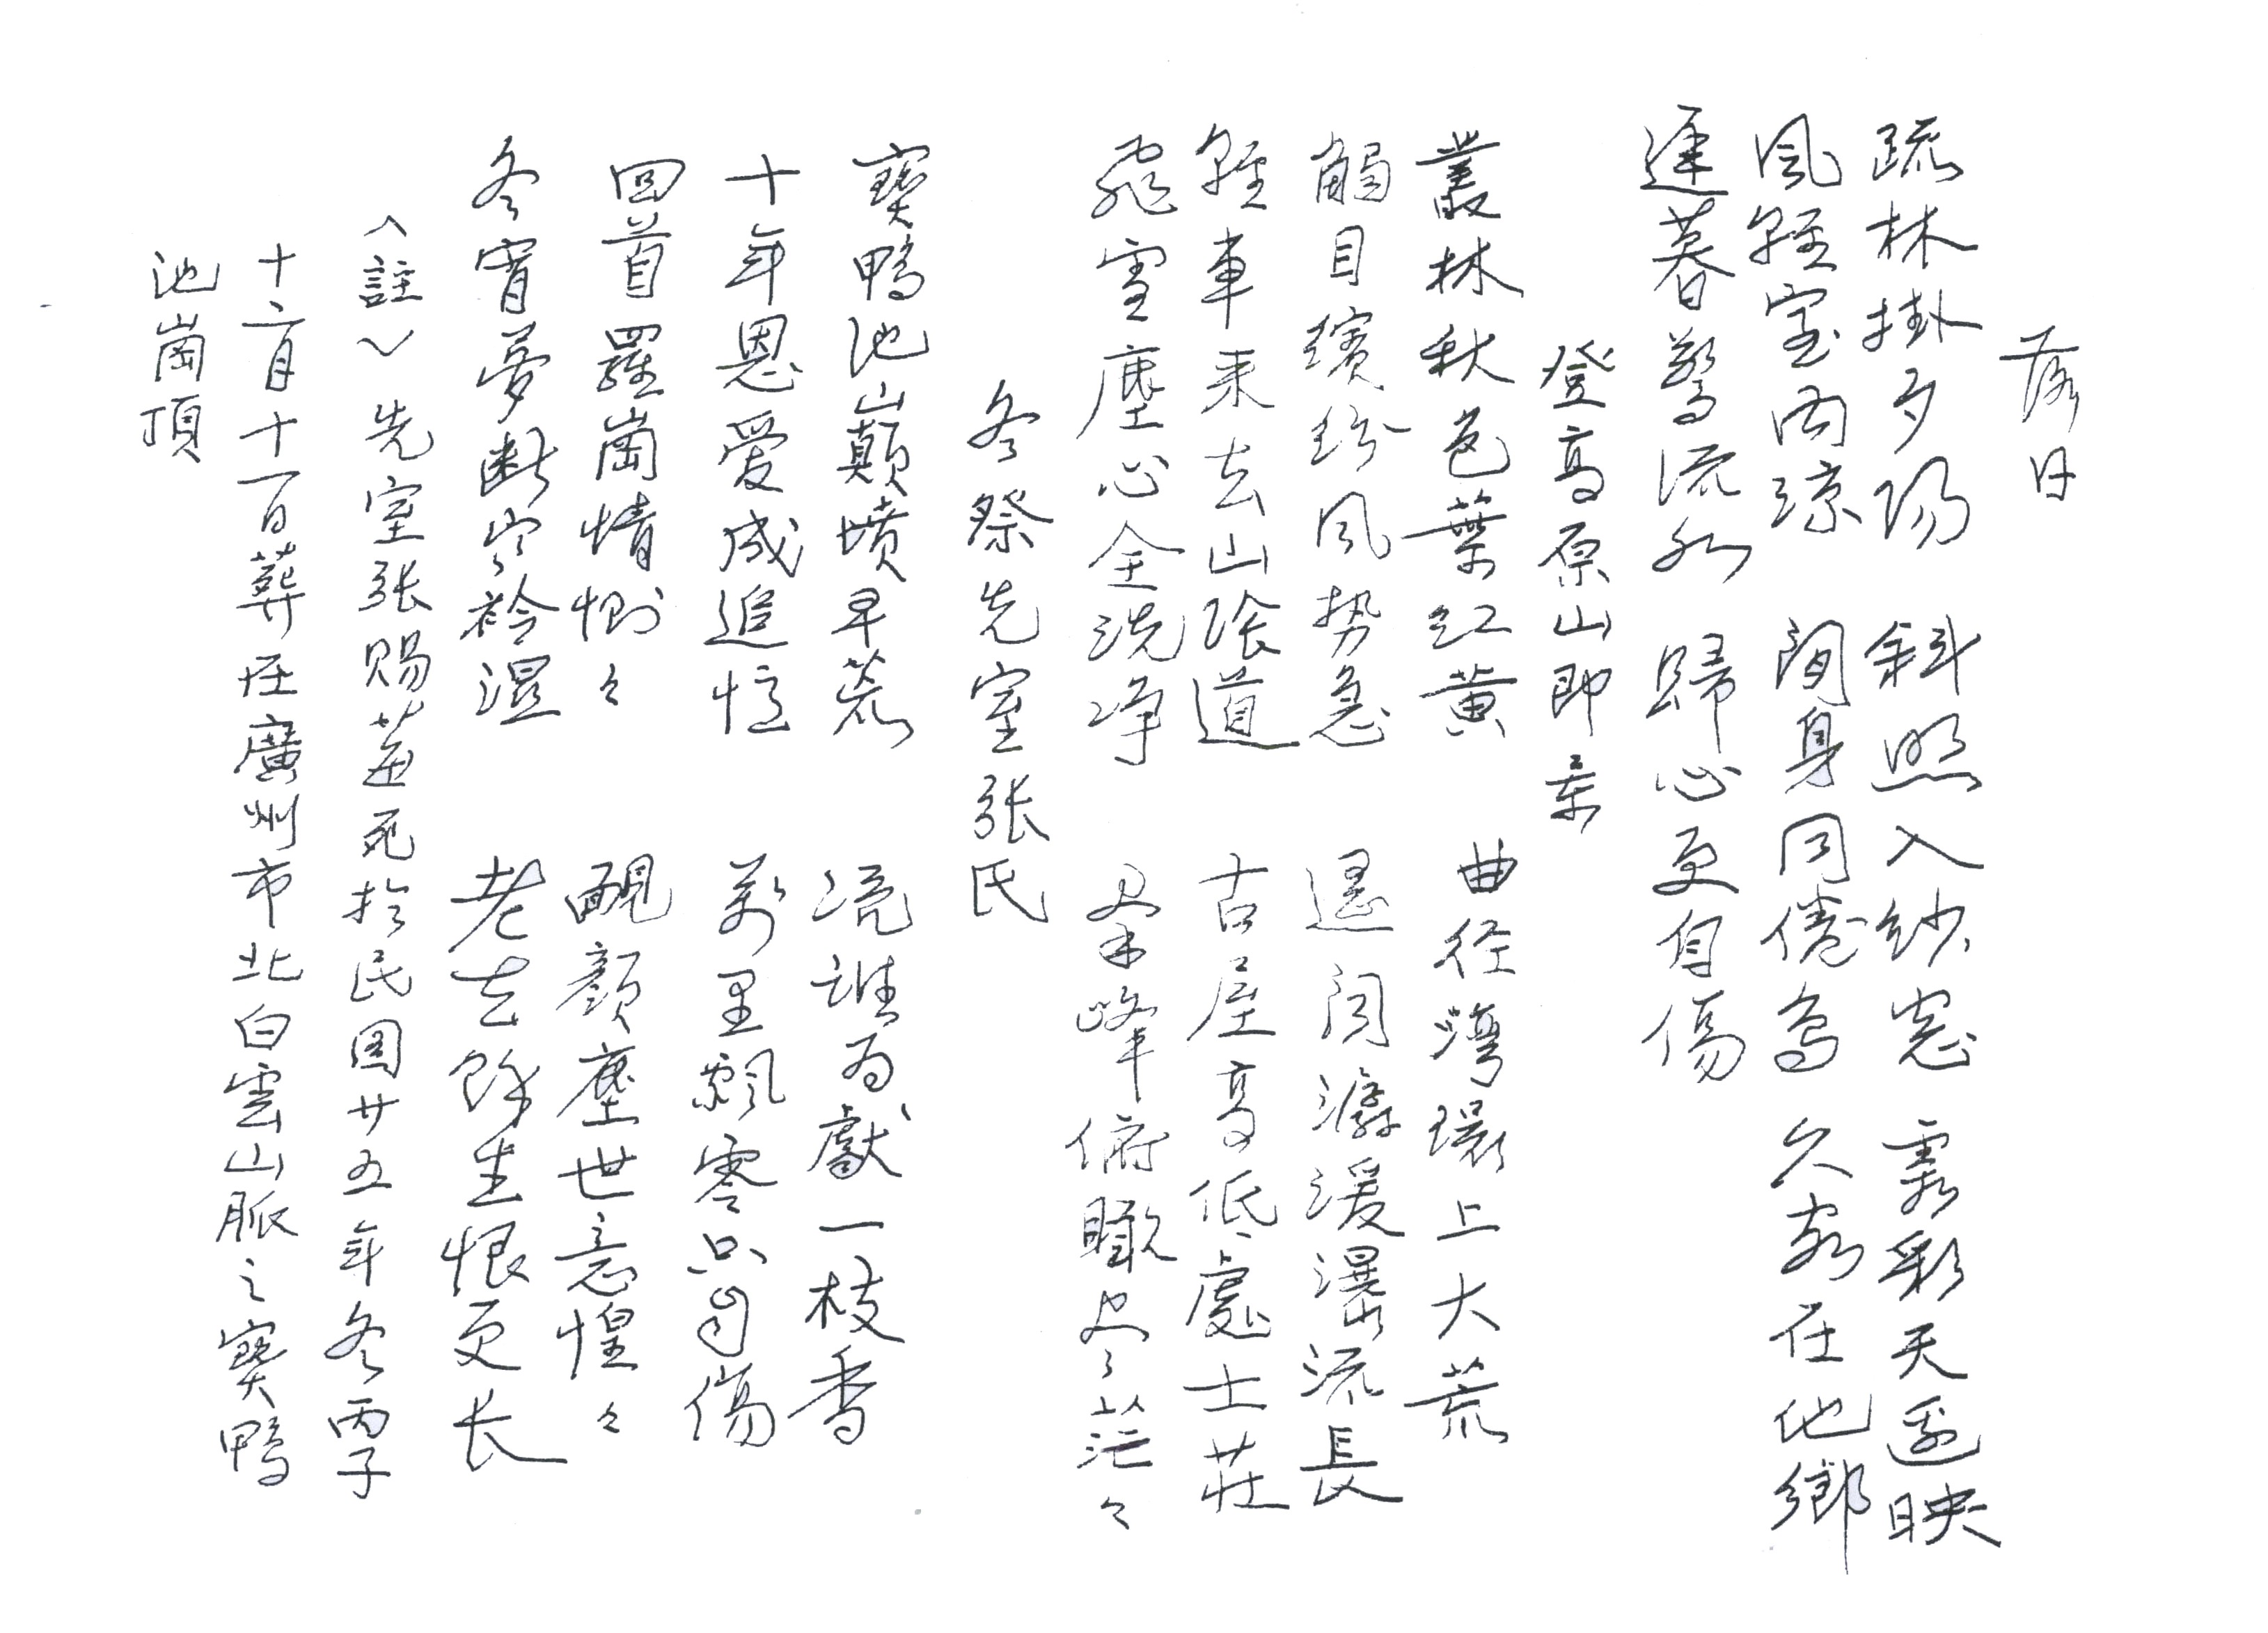 落日
疏林掛夕陽　斜照入紗窓　霞彩天邊映
風軽室內涼　閒身同倦鳥　久客在他鄉
遲暮驚流水　歸心更自傷
登高原山即景
叢林秋色葉紅黃　曲径灣環上大荒
觸目繽紛風勢急　遥聞潺湲瀑流長
軽車来去山陰道　古屋高低處士莊
飛雪塵心全洗净　羣峰俯瞰空茫々
冬祭先室张氏
寶鴨池山巔墳早荒　凭誰為獻一枝香
十年恩爱成追忆　萬里飄零只自傷
回首羅崗情惻々　靦顏塵世意惶々
冬宵夢断字衿湿　老去餘生恨更长
〈註〉先室张赐英死於民国廿五年冬丙子
十二月十一日葬在廣州市北白雲山脈之寶鴨
池崗頂